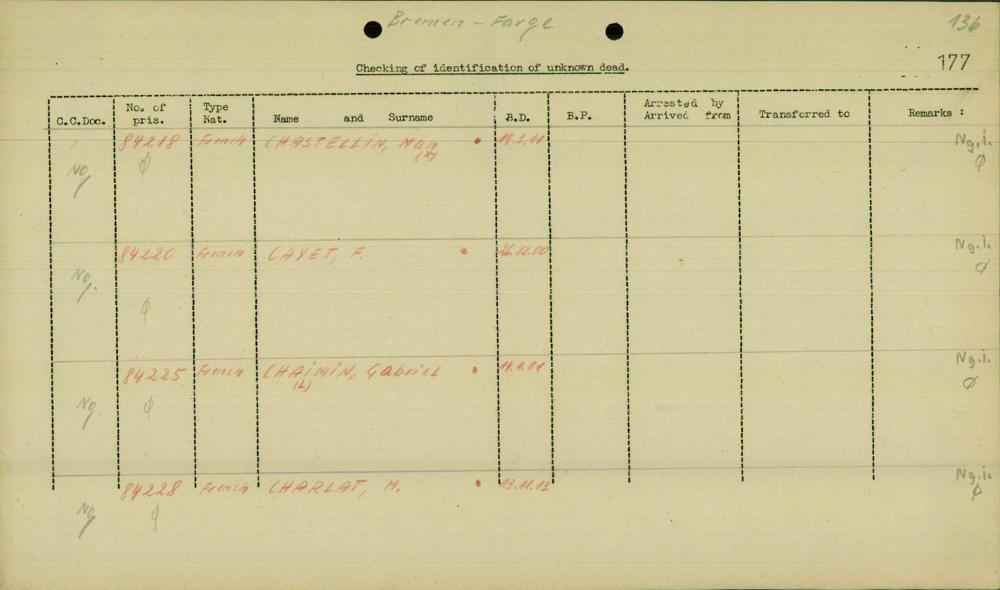 Bremen - Farge
136
177
Checking of identification of unknown dead.
C.C.Doc. No. of pris. Type Nat. Name and Surname B.D. B.P. Arrested by Arrived from Transferred to Remarks :
84218 French CHASTELLIN, • Ng.i.
No ø ø
84220 French CAYET, F. • 26.12.00 Ng.i.
No. ø ø
84225 French CHAIMIN, Gabriel • Ng.i.
(L)
No. ø ø
84228 French CHARLAT, M. • 13.11.13 Ng.i.
No ø ø